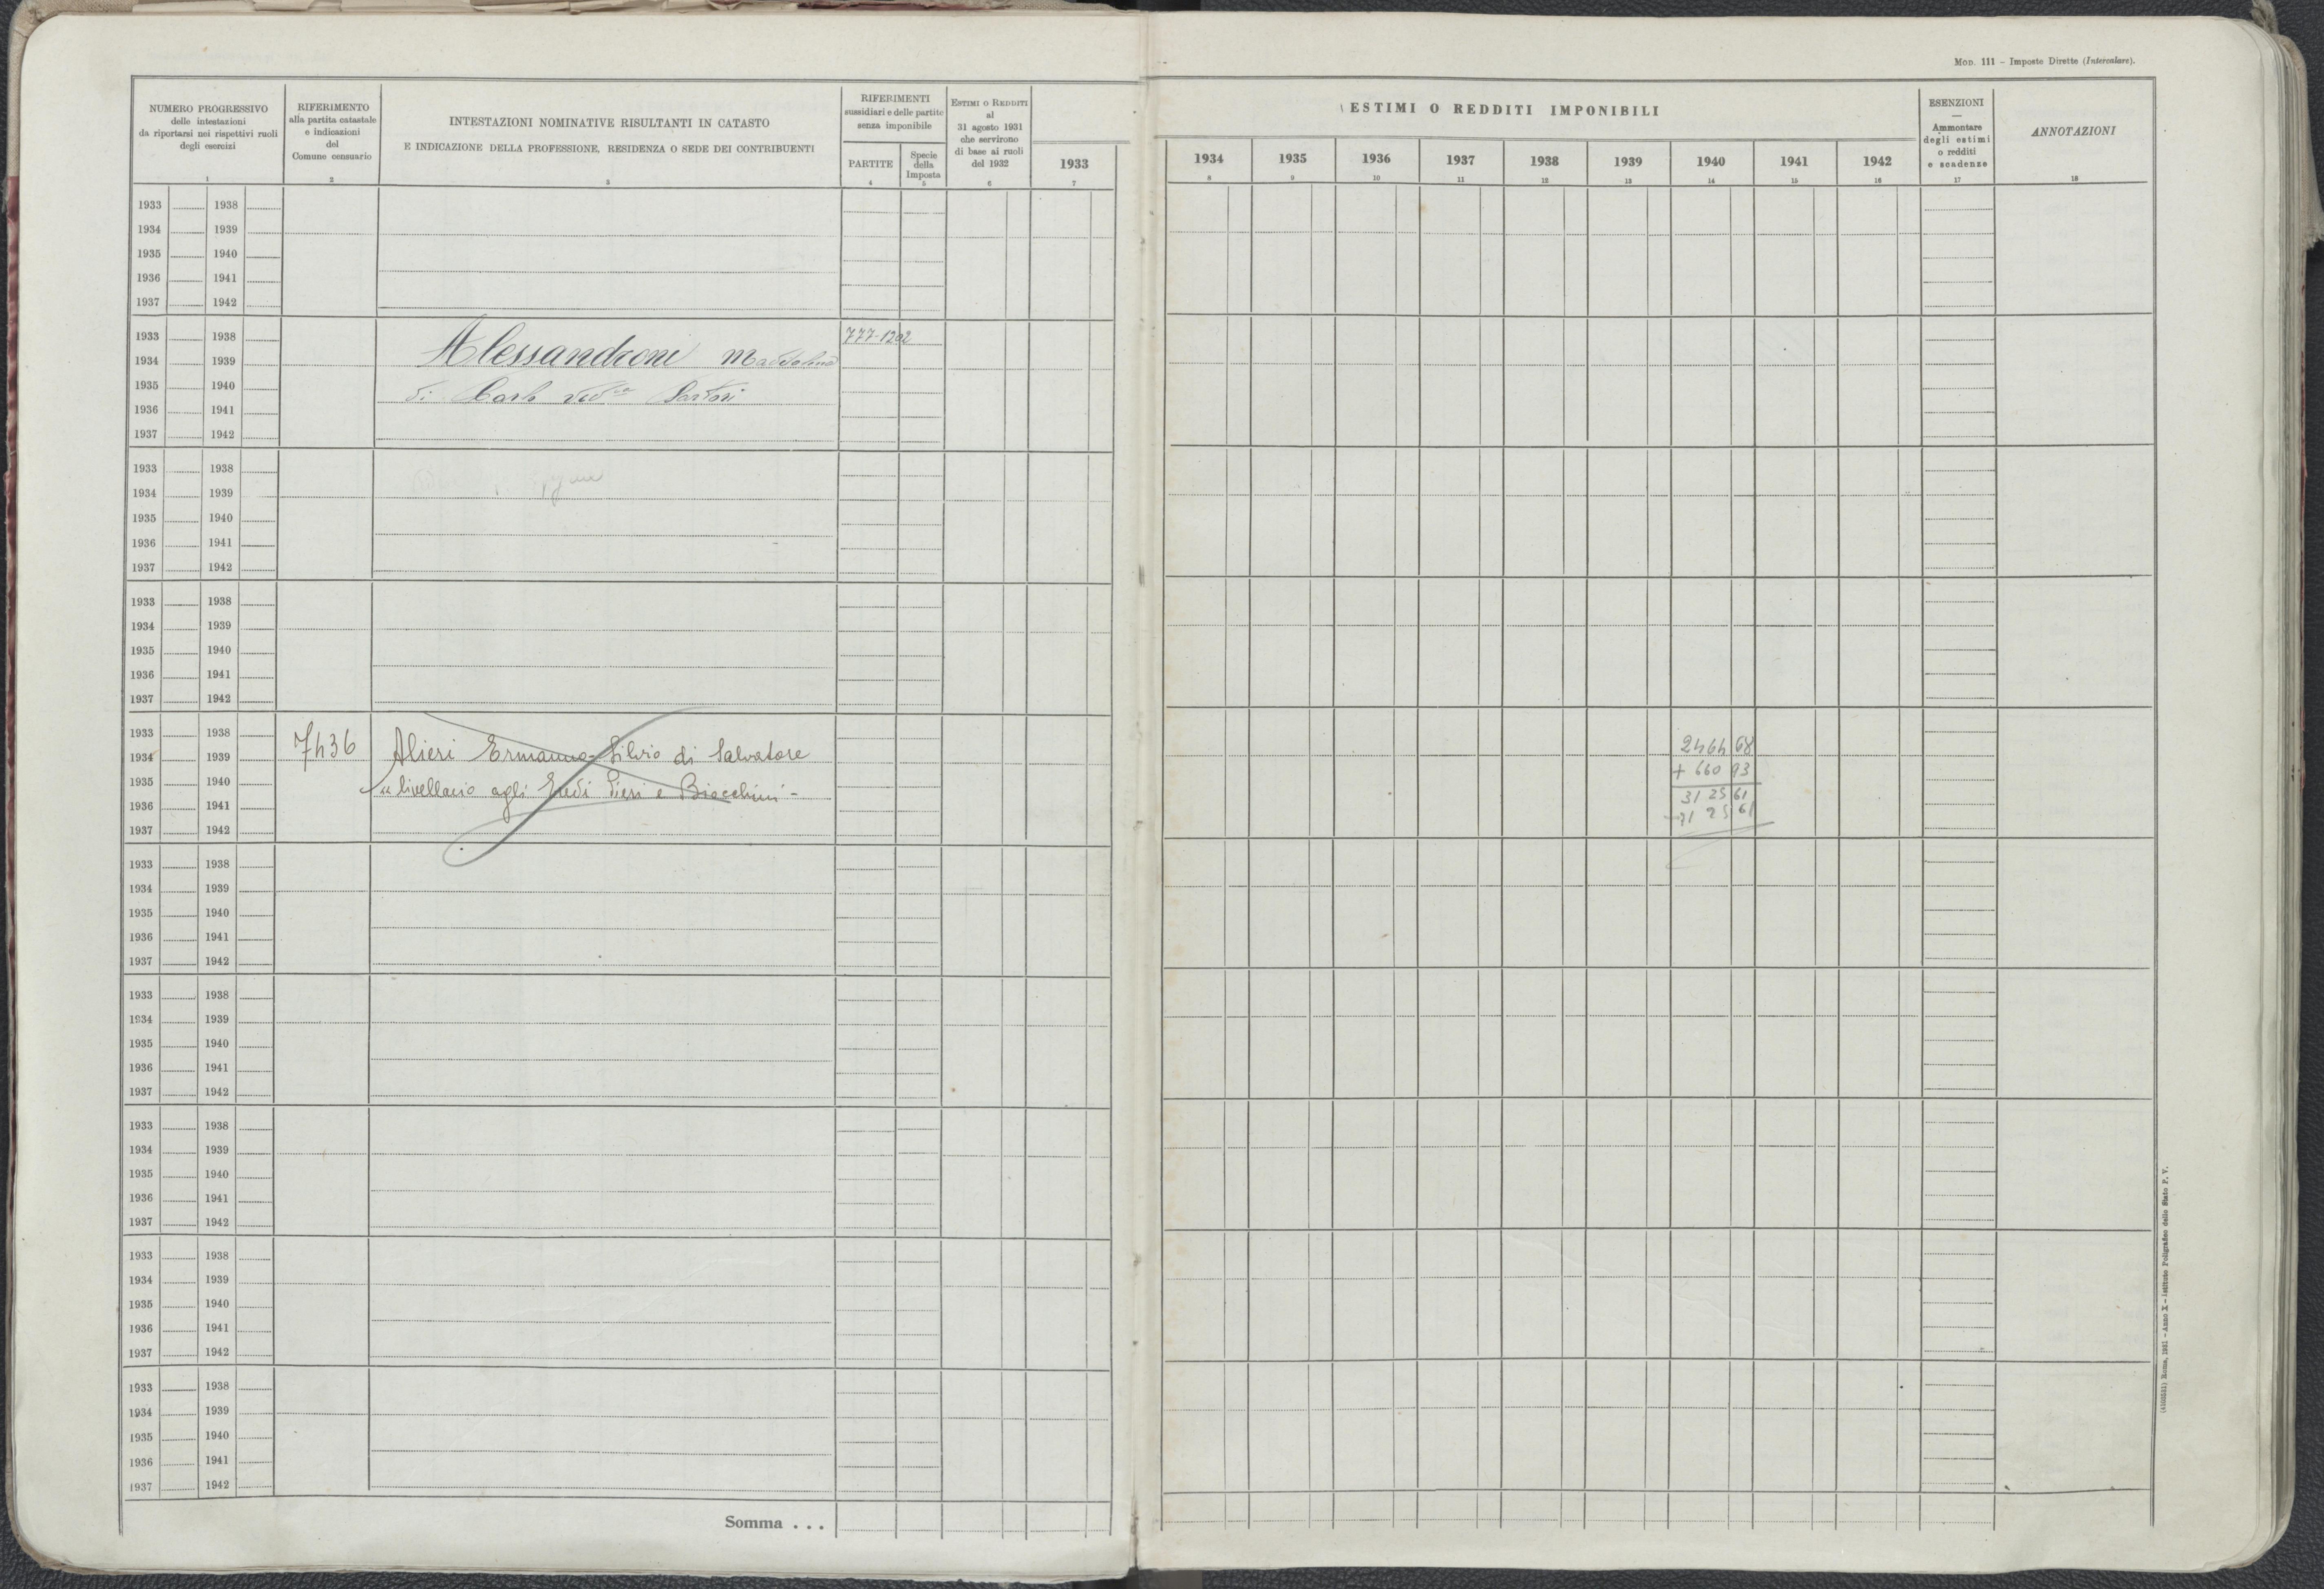 Mod. 111 – Imposte Dirette (Intercalare).
NUMERO PROGRESSIVO
delle intestazioni
da riportarsi nei rispettivi ruoli
degli esercizi
1
RIFERIMENTO
alla partita catastale
e indicazioni
del
Comune censuario
2
INTESTAZIONI NOMINATIVE RISULTANTI IN CATASTO
E INDICAZIONE DELLA PROFESSIONE, RESIDENZA O SEDE DEI CONTRIBUENTI
3
RIFERIMENTI
sussidiari e delle partite
senza imponibile
PARTITE
4
Specie
della
Imposta
5
Estimi o Redditi
al
31 agosto 1931
che servirono
di base ai ruoli
del 1932
6
ESTIMI O REDDITI IMPONIBILI
1933
7
1934
8
1935
9
1936
10
1937
11
1938
12
1939
13
1940
14
1941
15
1942
16
ESENZIONI
—
Ammontare
degli estimi
o redditi
e scadenze
17
ANNOTAZIONI
18
1933 1938
1934 1939
1935 1940
1936 1941
1937 1942
1933 1938 777-1202
1934 1939 Alessandroni Maddalena
1935 1940 di Carlo ved.va Sartori
1936 1941
1937 1942
1933 1938
1934 1939
1935 1940
1936 1941
1937 1942
1933 1938
1934 1939
1935 1940
1936 1941
1937 1942
1933 1938 7436 2464 68
1934 1939 Alieri Ermanno Silvio di Salvatore + 660 93
1935 1940 livellario agli Eredi Pieri e Biocchini - 3125 61
1936 1941 25 61
1937 1942
1933 1938
1934 1939
1935 1940
1936 1941
1937 1942
1933 1938
1934 1939
1935 1940
1936 1941
1937 1942
1933 1938
1934 1939
1935 1940
1936 1941
1937 1942
1933 1938
1934 1939
1935 1940
1936 1941
1937 1942
1933 1938
1934 1939
1935 1940
1936 1941
1937 1942
Somma . . .
(4105531) Roma, 1931 – Anno X – Istituto Poligrafico dello Stato P. V.